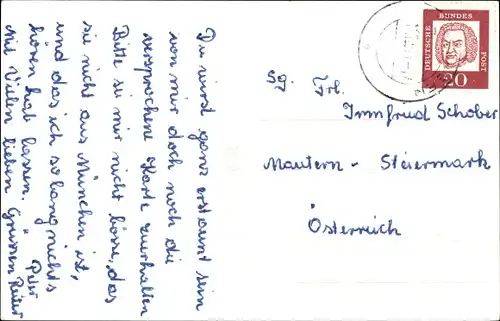 Du wirst ganz erstaunt sein
von mir doch noch die
versprochene Karte zuerhalten
Bitte sei mir nicht böse, das
sie nicht aus München ist,
und das ich so lang nichts
hören hab lassen.
Mit Vielen lieben Grüssen
Peter
Sg. Frl.
Irmfried Schober
Mautern - Steiermark
Österreich
DEUTSCHE BUNDES POST
20